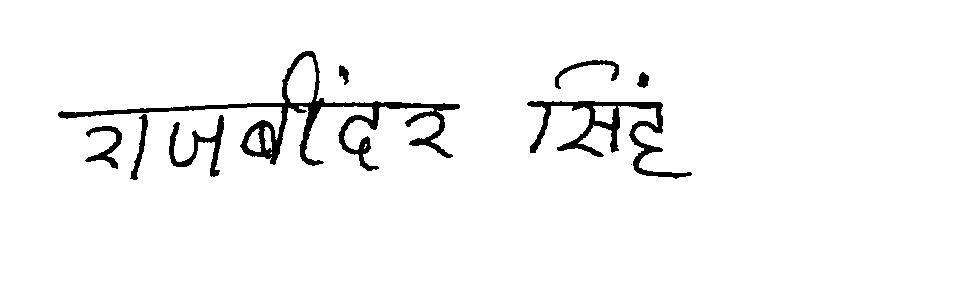 राजबींदर सिंह